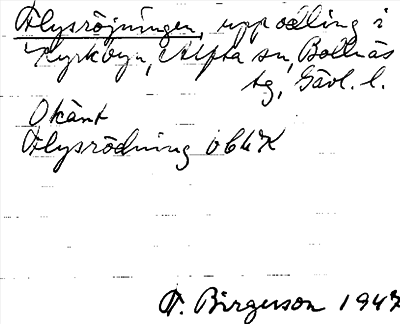 Flysröjningen, uppodling i
Kyrkbyn, Alfta sn, Bollnäs
tg, Gävl. l.
Okänt
Flysrödning ObkK
F. Birgerson 1947